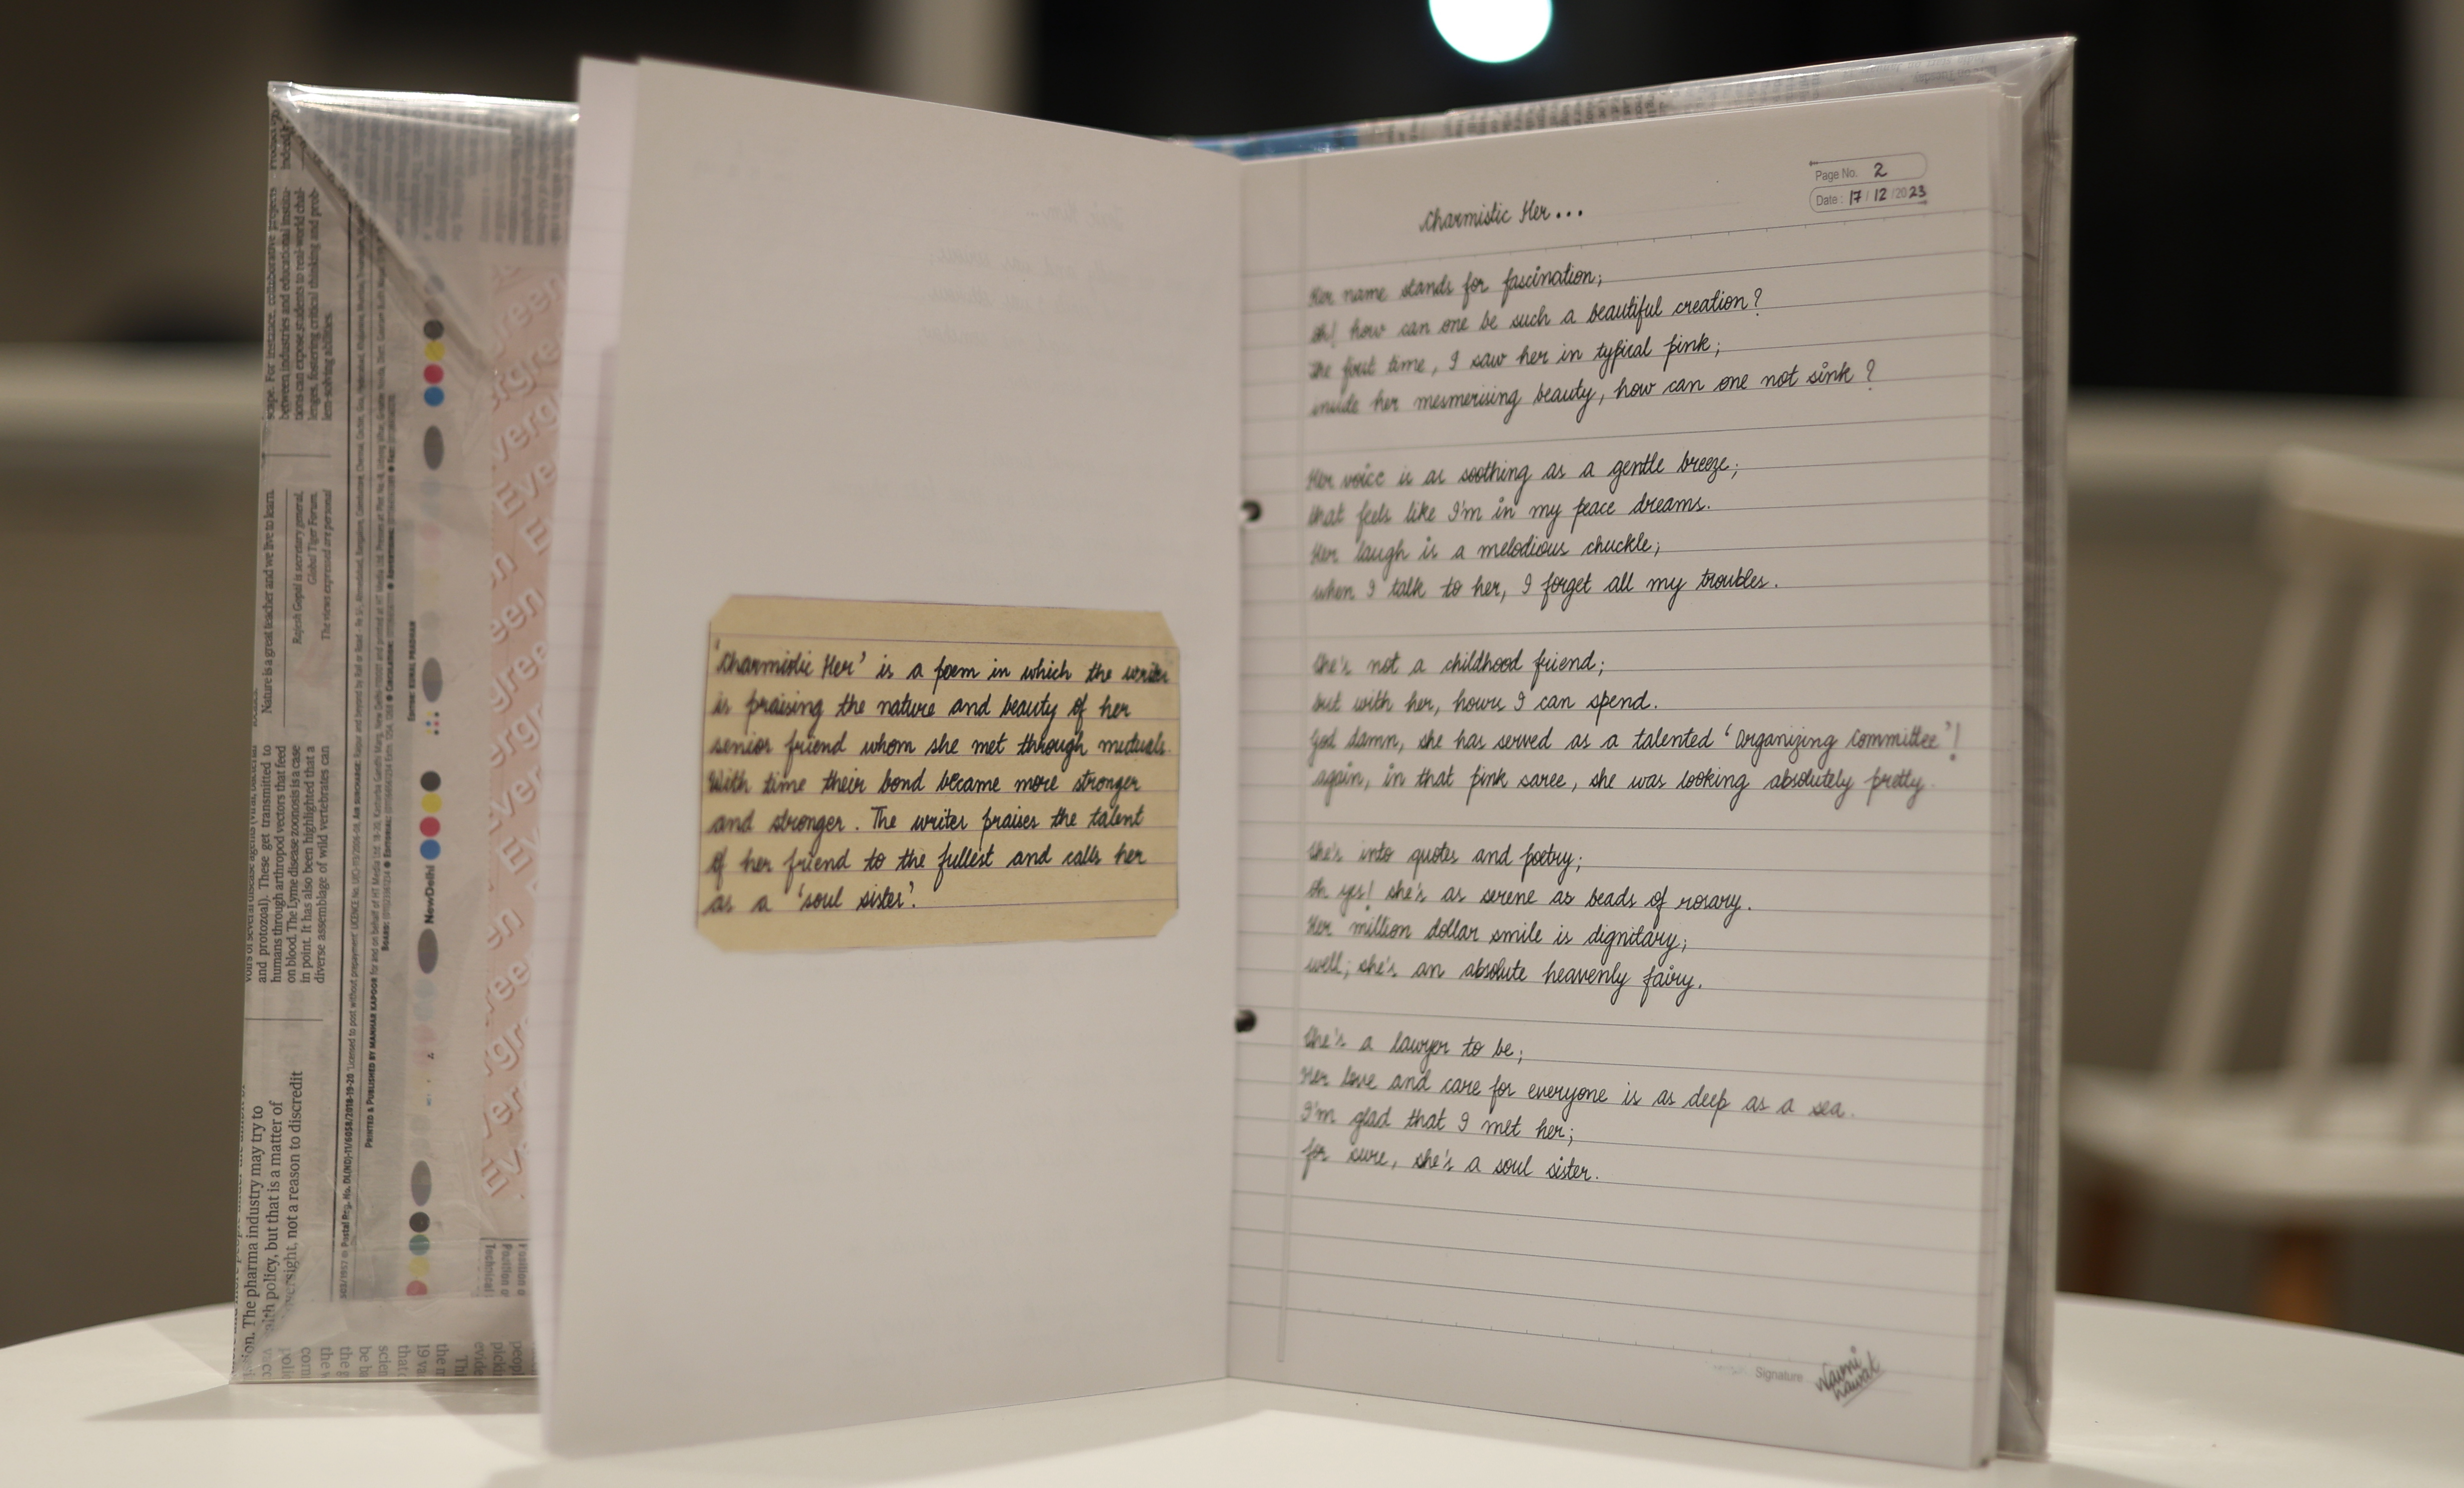 scape. For instance, collaborative projects
between industries and educational institu-
tions can expose students to real-world chal-
lenges, fostering critical thinking and prob-
lem-solving abilities.
Nature is a great teacher and we live to learn.
Rajesh Gopal is secretary general,
Global Tiger Forum.
The views expressed are personal
and protozoal). These get transmitted to
humans through arthropod vectors that feed
on blood. The Lyme disease zoonosis is a case
in point. It has also been highlighted that a
diverse assemblage of wild vertebrates can
The pharma industry may try to
policy, but that is a matter of
not a reason to discredit
PRINTED & PUBLISHED BY
NewDelhi
Evergreen
'Charmistic Her' is a poem in which the writer
is praising the nature and beauty of her
senior friend whom she met through mutuals.
With time their bond became more stronger
and stronger. The writer praises the talent
of her friend to the fullest and calls her
as a 'soul sister'.
Page No. 2
Date: 17/12/2023
Charmistic Her...
Her name stands for fascination;
oh! how can one be such a beautiful creation?
The first time, I saw her in typical pink;
inside her mesmerising beauty, how can one not sink?
Her voice is as soothing as a gentle breeze;
that feels like I'm in my peace dreams.
Her laugh is a melodious chuckle;
when I talk to her, I forget all my troubles.
She's not a childhood friend;
but with her, hours I can spend.
God damn, she has served as a talented 'Organizing Committee'!
again, in that pink saree, she was looking absolutely pretty.
She's into quotes and poetry;
oh yes! she's as serene as beads of rosary.
Her million dollar smile is dignitary;
well; she's an absolute heavenly fairy.
She's a lawyer to be;
Her love and care for everyone is as deep as a sea.
I'm glad that I met her;
for sure, she's a soul sister.
Signature